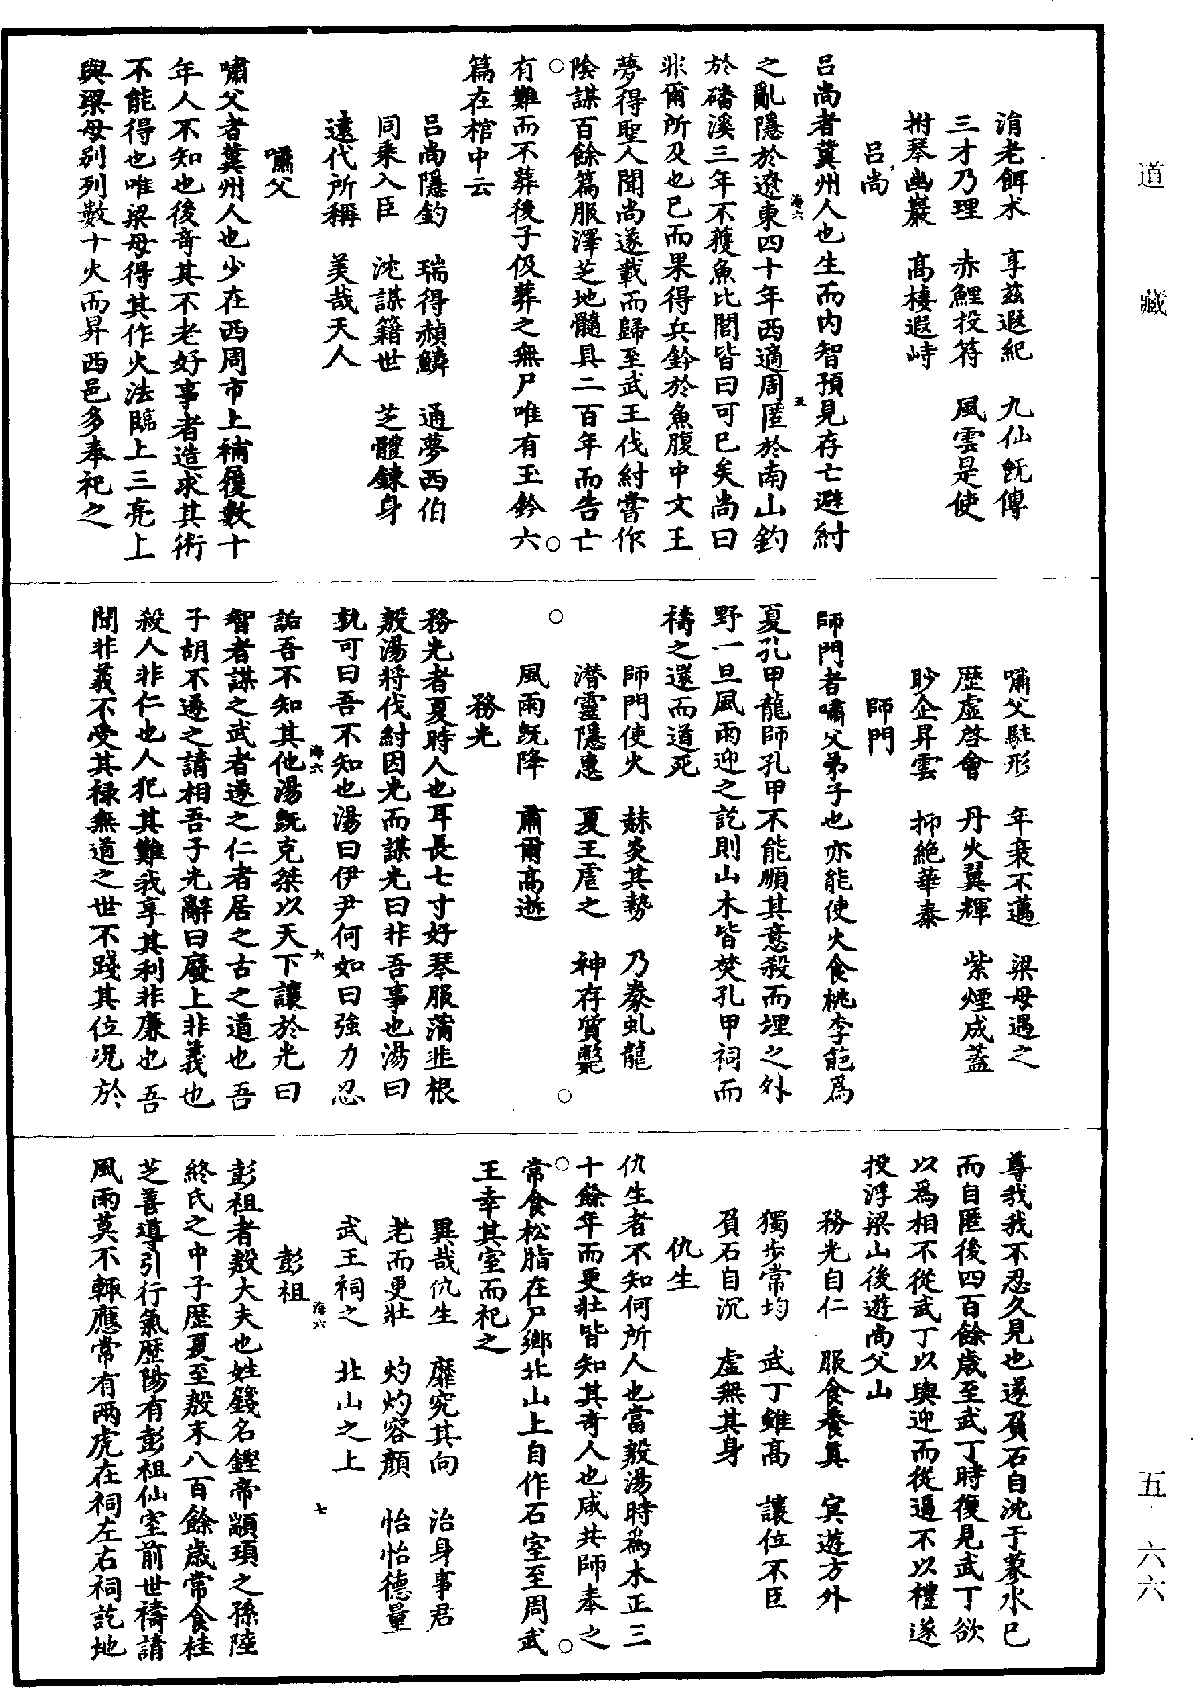 道藏
五六六
涓老餌术　享茲遐紀　九仙旣傳
三才乃理　赤鯉投符　風雲是使
拊琴幽巖　高棲遐峙
呂尚
呂尚者冀州人也生而內智預見存亡避紂
之亂隱於遼東四十年西適周匿於南山釣
於磻溪三年不獲魚比閭皆曰可已矣尚曰
非爾所及也已而果得兵鈐於魚腹中文王
夢得聖人聞尚遂載而歸至武王伐紂嘗作
陰謀百餘篇服澤芝地髓具二百年而告亡
有難而不葬後子伋葬之無尸唯有玉鈐六
篇在棺中云
呂尚隱釣　瑞得赬鱗　通夢西伯
同乘入臣　沈謀籍世　芝體鍊身
遠代所稱　美哉天人
嘯父
嘯父者冀州人也少在西周市上補履數十
年人不知也後奇其不老好事者造求其術
不能得也唯梁母得其作火法臨上三亮上
與梁母别列數十火而昇西邑多奉祀之
嘯父駐形　年衰不邁　梁母遇之
歷虛啓會　丹火翼輝　紫煙成蓋
眇企昇雲　抑絶華泰
師門
師門者嘯父弟子也亦能使火食桃李葩爲
夏孔甲龍師孔甲不能順其意殺而埋之外
野一旦風雨迎之訖則山木皆焚孔甲祠而
禱之還而道死
師門使火　赫炎其勢　乃豢虬龍
潜靈隱惠　夏王虐之　神存質斃
風雨旣降　肅爾高逝
務光
務光者夏時人也耳長七寸好琴服蒲韭根
殷湯將伐紂因光而謀光曰非吾事也湯曰
孰可曰吾不知也湯曰伊尹何如曰強力忍
詬吾不知其他湯旣克桀以天下讓於光曰
智者謀之武者遂之仁者居之古之道也吾
子胡不遂之請相吾子光辭曰廢上非義也
殺人非仁也人犯其難我享其利非廉也吾
聞非義不受其祿無道之世不踐其位况於
尊我我不忍久見也遂負石自沈于蓼水已
而自匿後四百餘歲至武丁時復見武丁欲
以爲相不從武丁以輿迎而從逼不以禮遂
投浮梁山後遊尚父山
務光自仁　服食養眞　冥遊方外
獨步常均　武丁雖高　讓位不臣
負石自沉　虛無其身
仇生
仇生者不知何所人也當殷湯時爲木正三
十餘年而更壯皆知其奇人也咸共師奉之
常食松脂在尸鄉北山上自作石室至周武
王幸其室而祀之
異哉仇生　靡究其向　治身事君
老而更壯　灼灼容顏　怡怡德量
武王祠之　北山之上
彭祖
彭祖者殷大夫也姓籛名鏗帝顓頊之孫陸
終氏之中子歷夏至殷末八百餘歲常食桂
芝善導引行氣歷陽有彭祖仙室前世禱請
風雨莫不輒應常有兩虎在祠左右祠訖地
海六　五
海六　六
海六　七